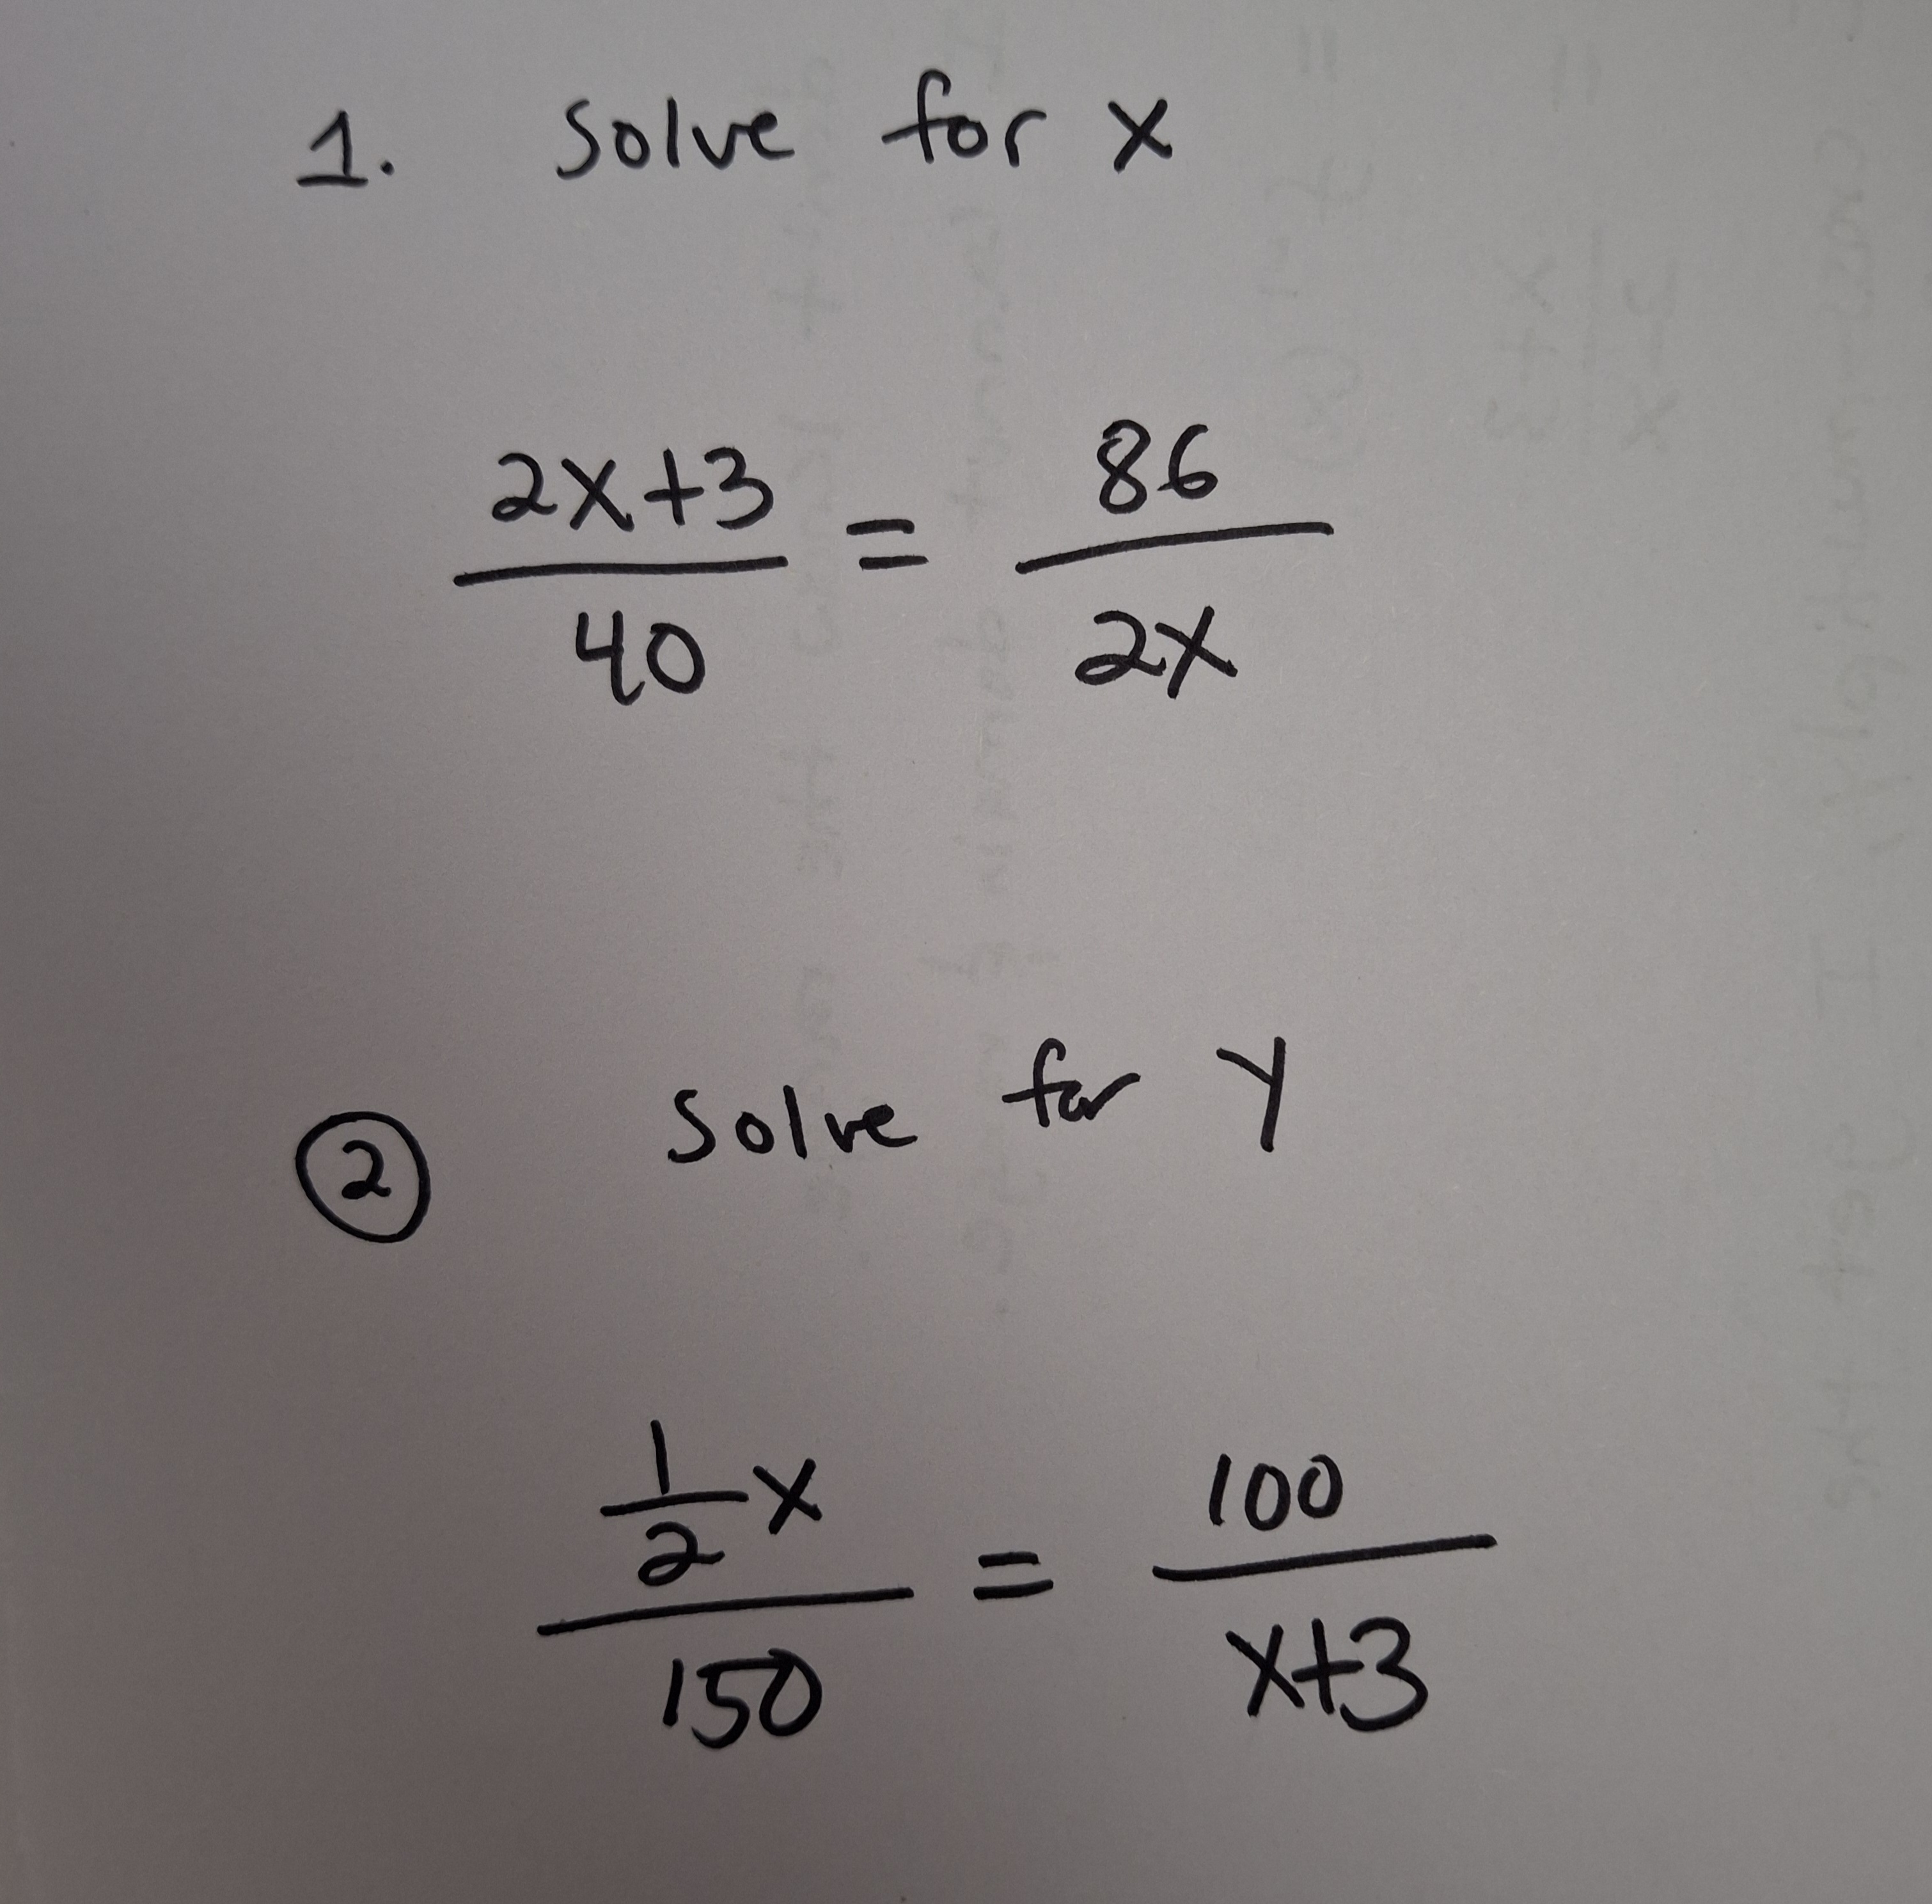 1. Solve for x
2x+3 / 40 = 86 / 2x
② Solve for Y
1/2 x / 150 = 100 / x+3